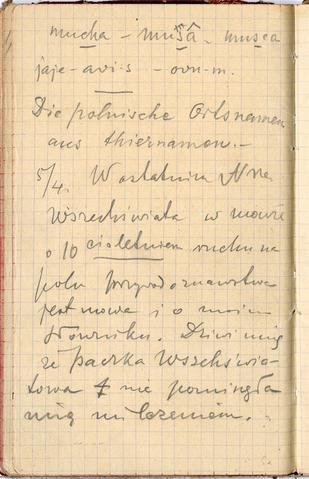 mucha – mušâ – musca
jaje - avi-s – ovu-m.
Die polnische Ortsnamen
aus thiernamen. –
5/4. W ostatnim Nrze
Wszechświata w mowie
o 10 cioletniem ruchu na
polu przyrodoznawstwa
jest mowa i o moim
słowniku. Dziwi mię
że paczka Wszechświa-
towa nie pominęła
mię milczeniem.